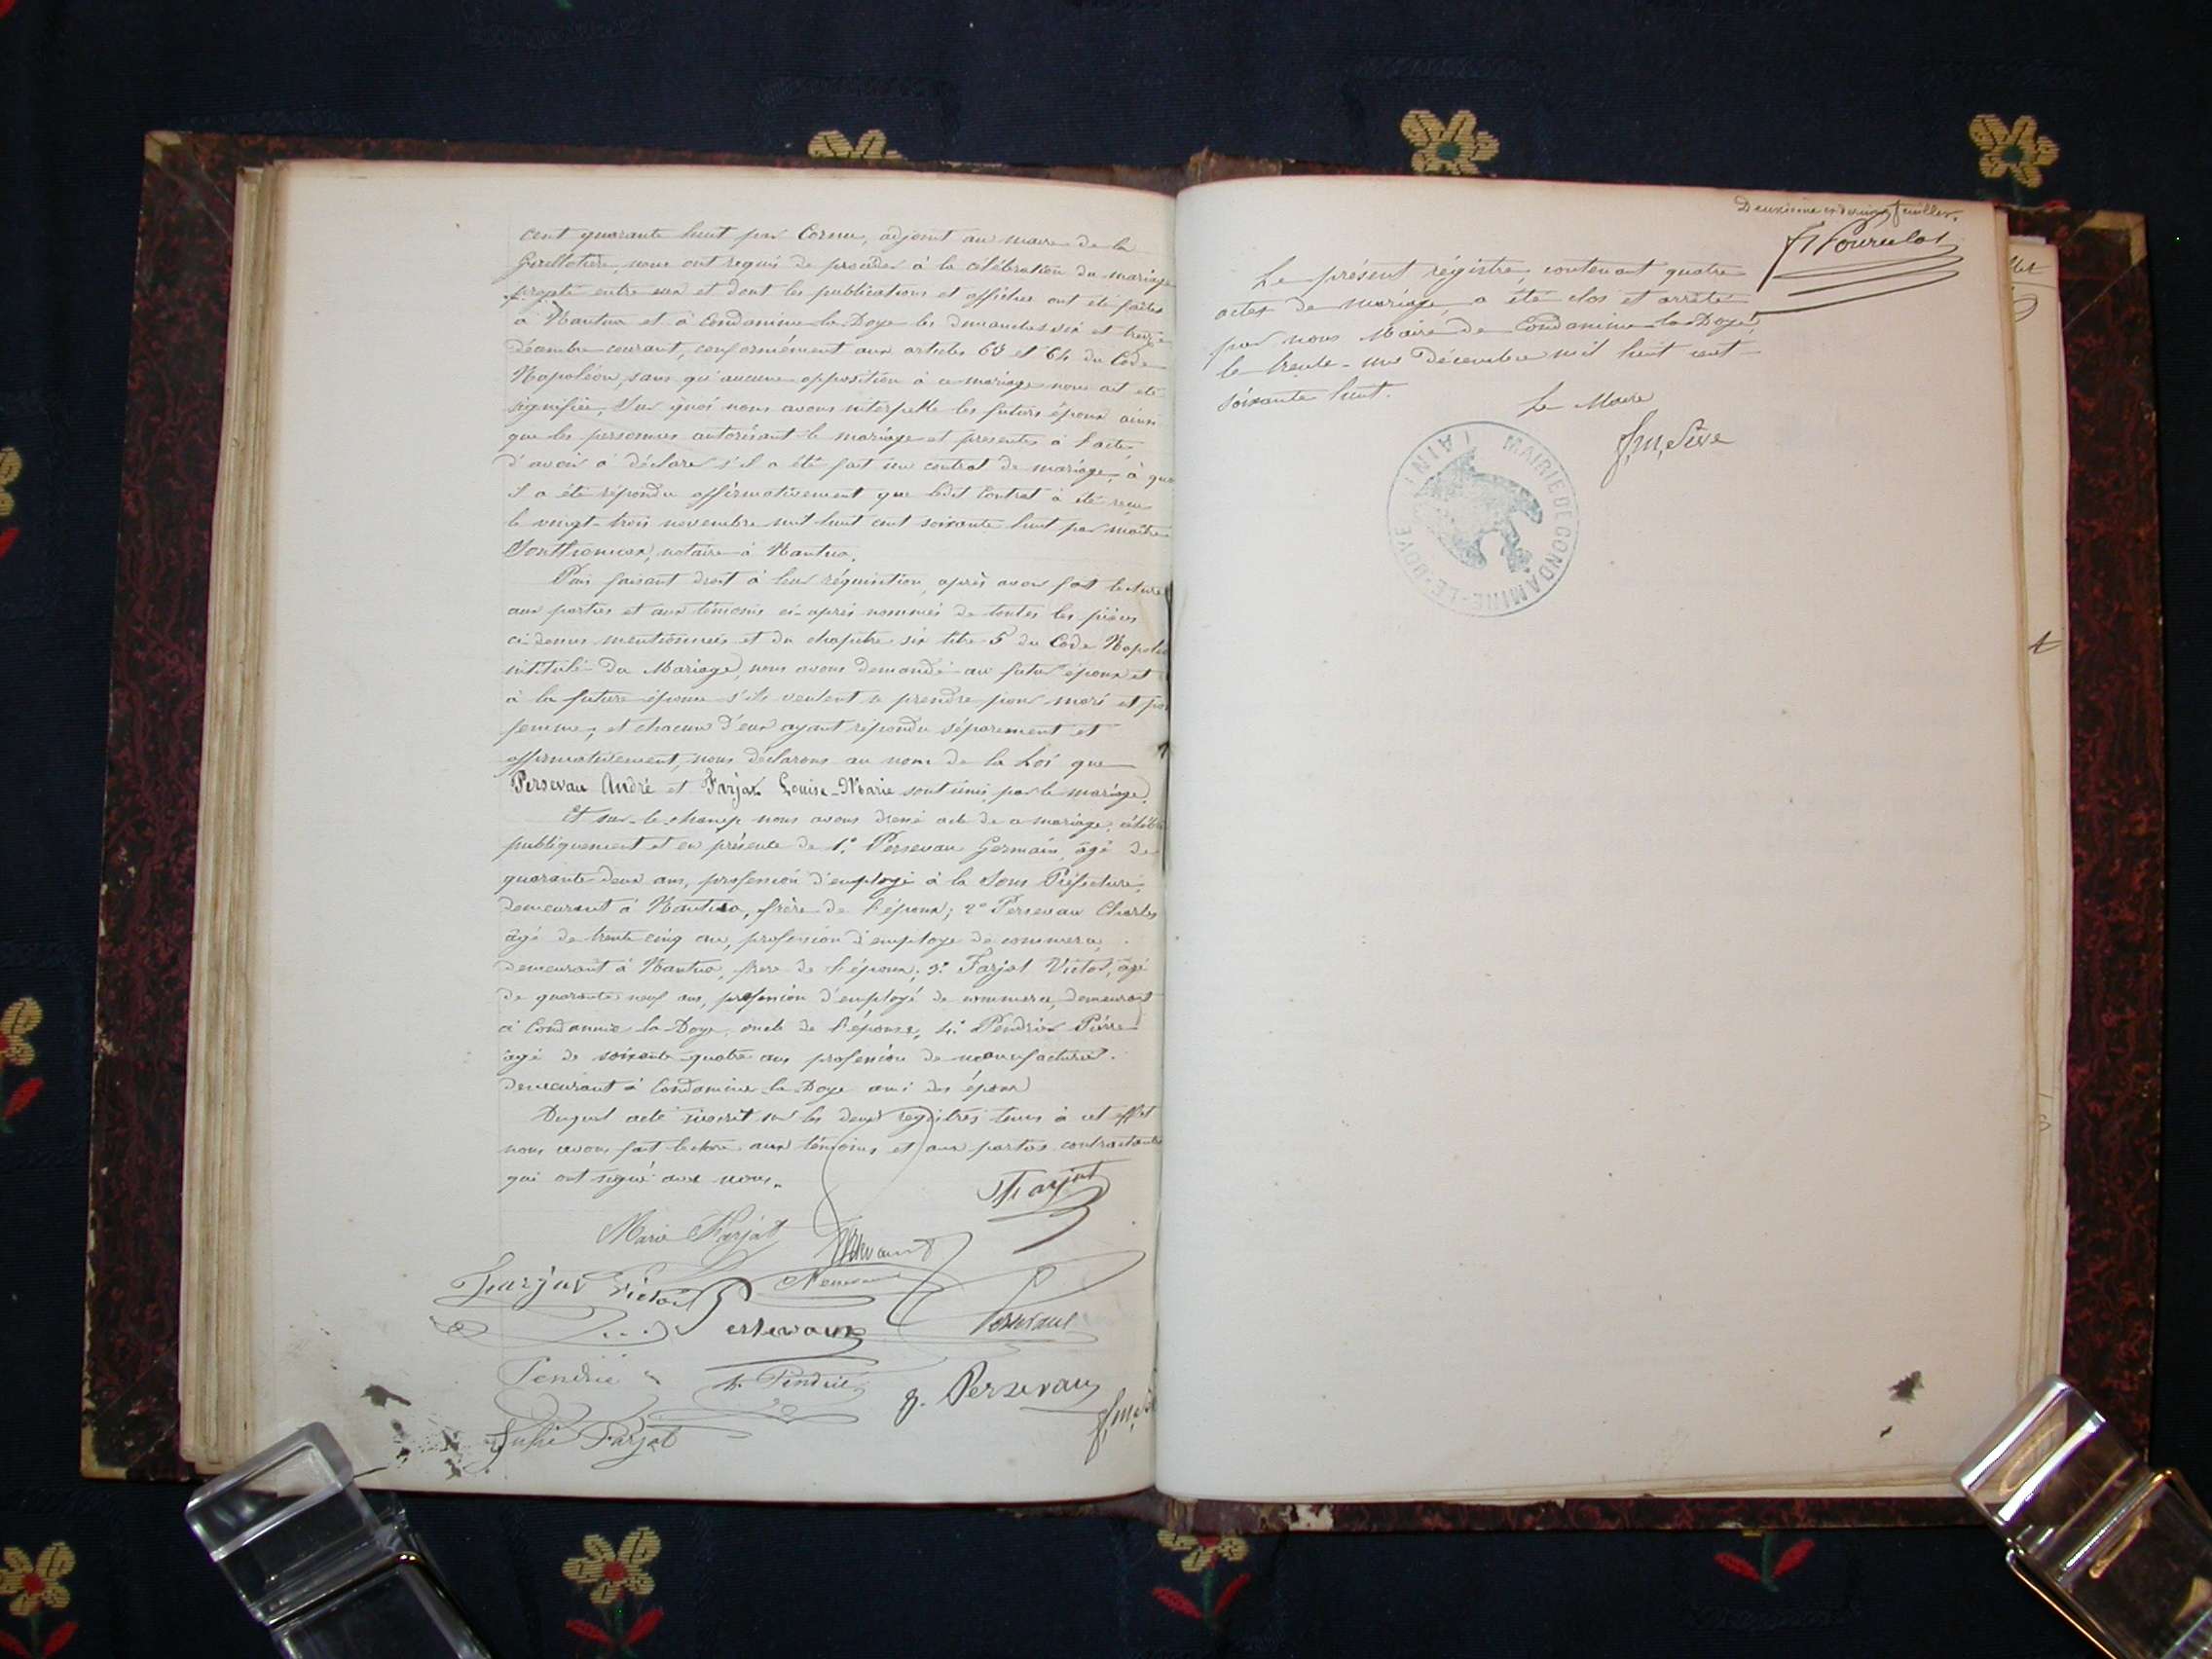 cent quarante huit par Cornu, adjoint au maire de la
Guillotière, nous ont requis de procéder à la célébration du mariage
projeté entre eux et dont les publications et affiches ont été faites
à Nantua et à Condamine la Doye les dimanches six et treize
décembre courant, conformément aux articles 63 et 64 du Code
Napoléon, sans qu'aucune opposition à ce mariage nous ait été
signifiée. Sur quoi nous avons interpellé les futurs époux ainsi
que les personnes autorisant le mariage et présentes à l'acte
d'avoir à déclarer s'il a été fait un contrat de mariage, à quoi
il a été répondu affirmativement que ledit Contrat a été reçu
le vingt-trois novembre mil huit cent soixante huit par maître
notaire à Nantua.
Puis faisant droit à leur réquisition, après avoir fait lecture
aux parties et aux témoins ci-après nommés de toutes les pièces
ci-dessus mentionnées et du chapitre six titre 5 du Code Napoléon
intitulé Du Mariage, nous avons demandé au futur époux et
à la future épouse s'ils veulent se prendre pour mari et pour
femme, et chacun d'eux ayant répondu séparément et
affirmativement, nous déclarons au nom de la Loi que
Persevau André et Farjat Louise-Marie sont unis par le mariage.
Et sur-le-champ nous avons dressé acte de ce mariage, célébré
publiquement et en présence de 1° Persevau Germain, âgé de
quarante deux ans, profession d'employé à la Sous Préfecture,
demeurant à Nantua, frère de l'époux; 2° Persevau Charles
âgé de trente cinq ans, profession d'employé de commerce,
demeurant à Nantua, frère de l'époux; 3° Farjat Victor, âgé
de quarante neuf ans, profession d'employé de commerce, demeurant
à Condamine la Doye, oncle de l'épouse, 4° Pendrié Pierre
âgé de soixante quatre ans profession de manufacturier
demeurant à Condamine la Doye ami des époux
Duquel acte inscrit sur les deux registres tenus à cet effet
nous avons fait lecture aux témoins et aux parties contractantes
qui ont signé avec nous.
Farjat
Marie Farjat
Farjat Victor
Persevaux
Persevaux
Pendrié
Pendrié
g. Persevaux
J.M.
Julie Farjat
Deuxième et dernier feuillet.
Le présent régistre, contenant quatre
actes de mariage, a été clos et arrêté
par nous Maire de Condamine la Doye,
le trente-un Décembre mil huit cent
soixante huit.
Le Maire
J.M. Sève
MAIRIE DE CONDAMINE-LE-DOYE (AIN)